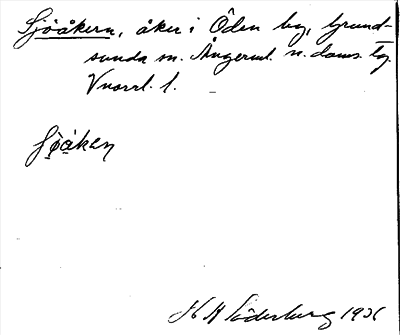 Sjöåkern, åker i Öden by, Grund-
sunda sn. Ångerml. n. doms. tg
Vnorrl. l.
Sjöåken
H Söderberg 1931